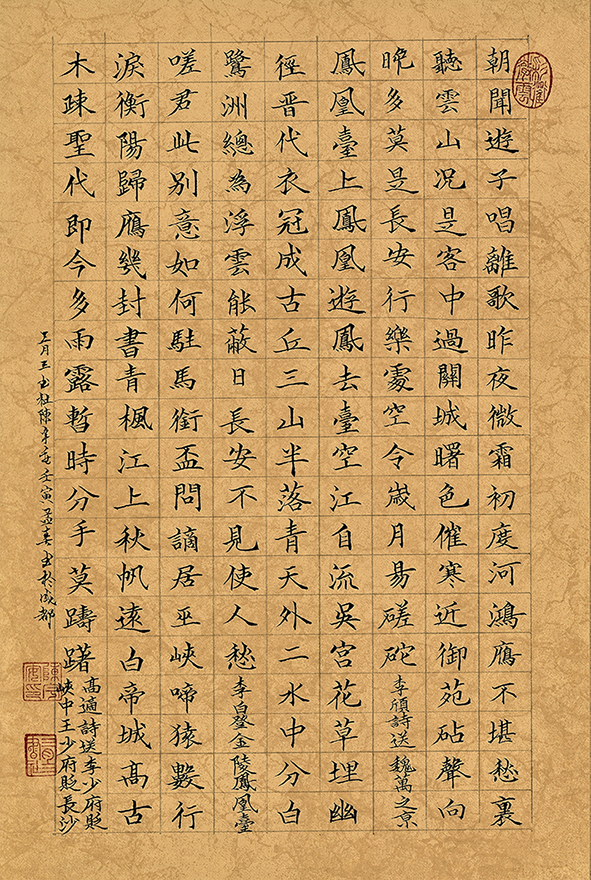 朝聞遊子唱離歌昨夜微霜初度河鴻鴈不堪愁裏
聽雲山況是客中過關城曙色催寒近御苑砧聲向
晚多莫是長安行樂處空令歲月易磋砣李頎詩送魏萬之京
鳳凰臺上鳳凰遊鳳去臺空江自流吳宮花草埋幽
徑晉代衣冠成古丘三山半落青天外二水中分白
鷺洲總為浮雲能蔽日長安不見使人愁李白登金陵鳳凰臺
嗟君此別意如何駐馬銜盃問謫居巫峽啼猿數行
淚衡陽歸鴈幾封書青楓江上秋帆遠白帝城高古
木疎聖代即今多雨露暫時分手莫躊躇
高適詩送李少府貶
峽中王少府貶長沙
壬寅孟春書於成都